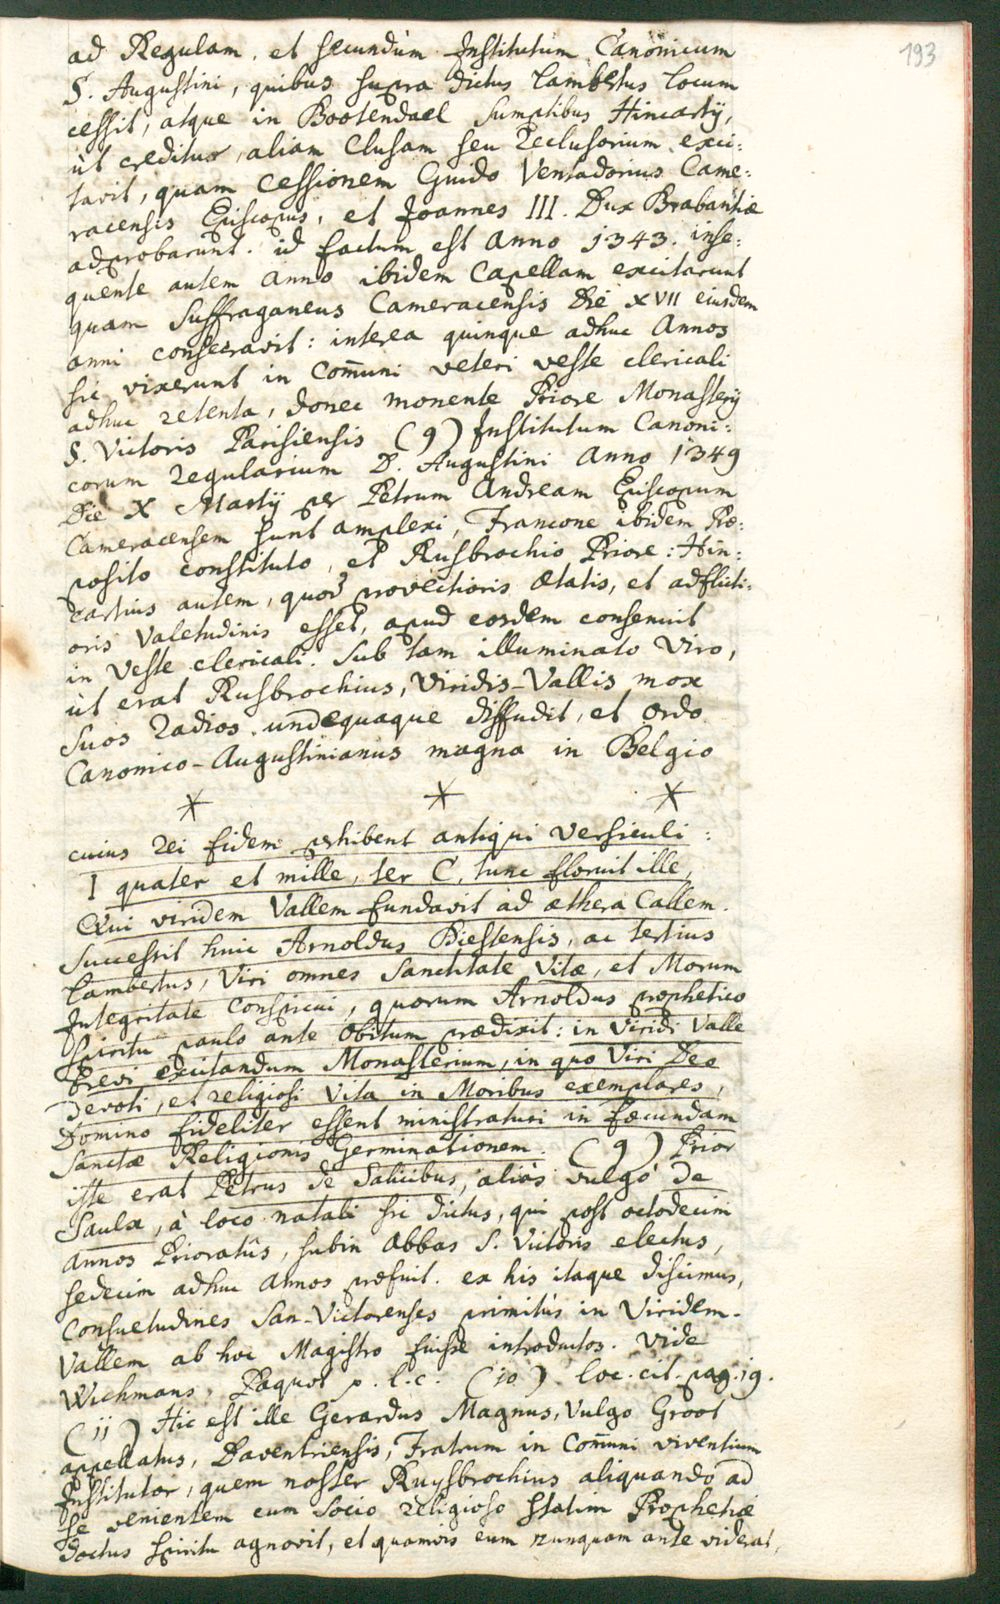 193
ad Regulam, et secundùm Institutum Canonicum
S. Augustini, quibus supra dictus Lambertus locum
cessit, atque in Bootendael sumptibus Hincartij,
ùt creditur, aliam Clusam seu Reclusorium exci:
tavit, quam Cessionem Guido Ventadorius Came:
racensis Episcopus, et Joannes III. Dux Brabantiæ
adprobarunt. id factum est Anno 1343. inse:
quente autem anno ibidem Capellam excitarunt
quam Suffraganeus Cameracensis Die XVII eiusdem
anni consecravit: interea quinque adhuc Annos
sic vixerunt in Com̄uni veteri veste clericali
adhuc retenta, donec monente Priore Monasterij
S. Victoris Parisiensis (9) Institutum Canoni:
corum Regularium D. Augustini Anno 1349
Die X Martij per Petrum Andream Episcopum
Cameracensem sunt amplexi, Francone ibidem Præ:
posito constituto, et Rusbrochio Priore: Hin:
cartius autem, quod provectioris ætatis, et adflicti:
oris Valetudinis esset, apud eosdem consenuit
in Veste clericali. Sub tam illuminato Viro,
ùt erat Rusbrochius, Viridis-Vallis mox
Suos Radios undequaque diffudit, et Ordo
Canonico-Augustinianus magna in Belgio
* * *
cuius rei fidem perhibent antiqui Versiculi:
I quater et mille, ter C, tunc floruit ille,
Qui viridem Vallem fundavit ad æthera Callem.
Successit huic Arnoldus Diestensis, ac tertius
Lambertus, Viri omnes Sanctitate Vitæ, et Morum
Integritate Conspicui, quorum Arnoldus prophetico
Spiritu paulo ante Obitum prædixit: in Viridi Valle
brevi excitandum Monasterium, in quo Viri Deo
Devoti, et religiosi Vita in Moribus exemplares,
Domino fideliter essent ministraturi in fœcundam
Sanctæ Religionis Germinationem. (9) Prior
iste erat Petrus de Salicibus, aliàs vulgò de
Saulx, à loco natali sic dictus, qui post octodecim
annos Prioratûs, subin Abbas S. Victoris electus,
sedecim adhuc annos præfuit. ex his itaque discimus,
Consuetudines San-Victorenses primitùs in Viridem-
Vallem ab hoc Magistro fuisse introductos. Vide
Wichmans, Paquot p. l. c. (10) loc. cit. pag. 19.
(11) Hic est ille Gerardus Magnus, Vulgo Groot
appellatus, Daventriensis, Fratrum in Com̄uni viventium
Institutor, quem noster Ruysbrochius aliquando ad
se venientem cum Socio religioso statim Prophetiæ
doctus spiritu agnovit, et quamvis eum nunquam ante viderat,